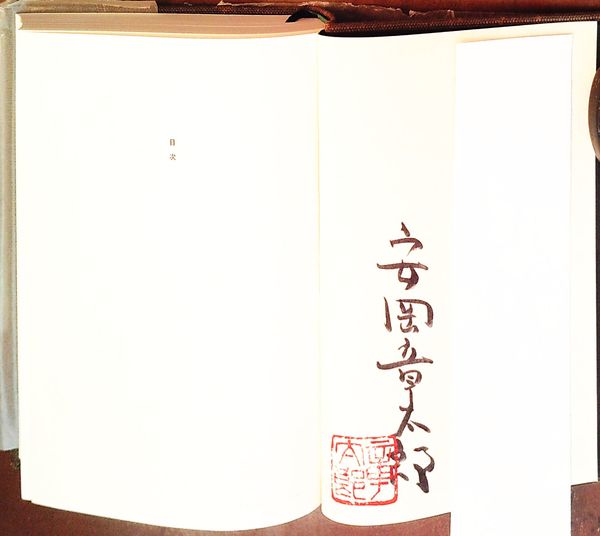 安岡章太郎
目次